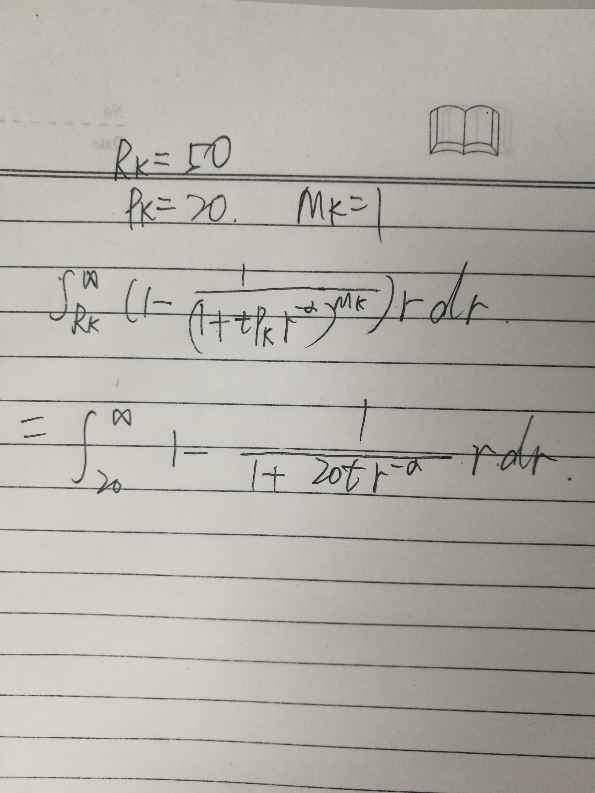 R_K = 50
P_K = 20. M_K = 1
∫_{R_K}^{∞} (1 - \frac{1}{(1 + tP_K r^{-α})^{M_K}}) r dr.
= ∫_{20}^{∞} 1 - \frac{1}{1 + 20t r^{-α}} r dr.